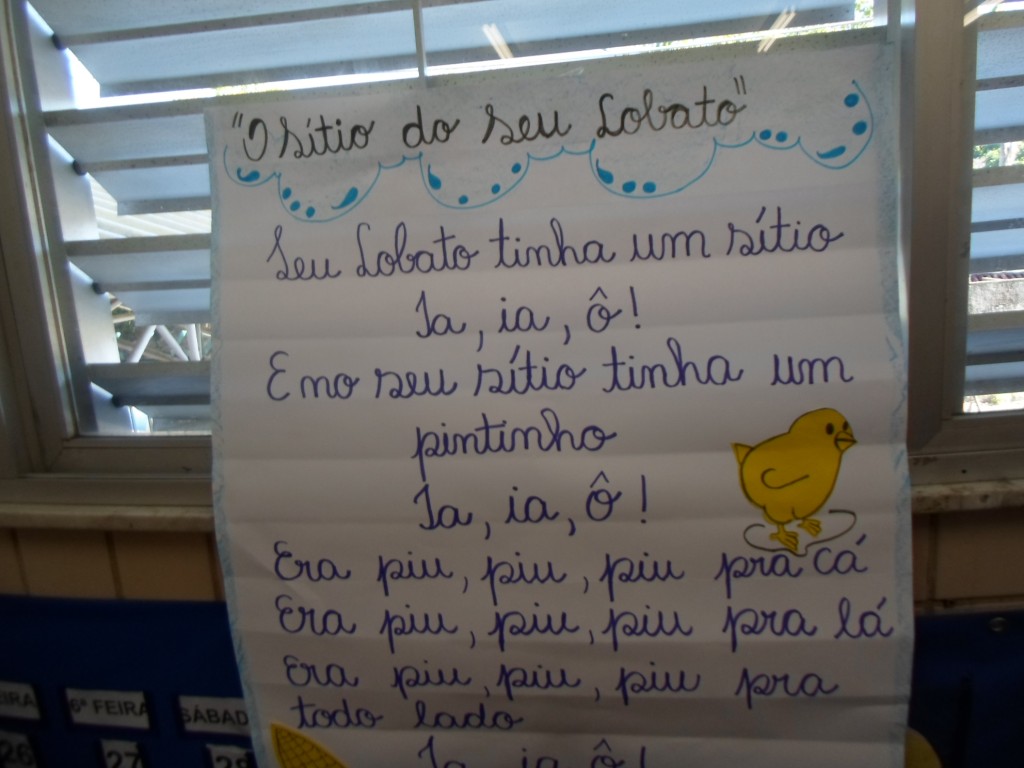 "O sítio do seu Lobato"
Seu Lobato tinha um sítio
Ia, ia, ô!
E no seu sítio tinha um
pintinho
Ia, ia, ô!
Era piu, piu, piu pra cá
Era piu, piu, piu pra lá
Era piu, piu, piu pra
todo lado
Ia, ia, ô!
EIRA 6ª FEIRA SÁBAD
26 27 28